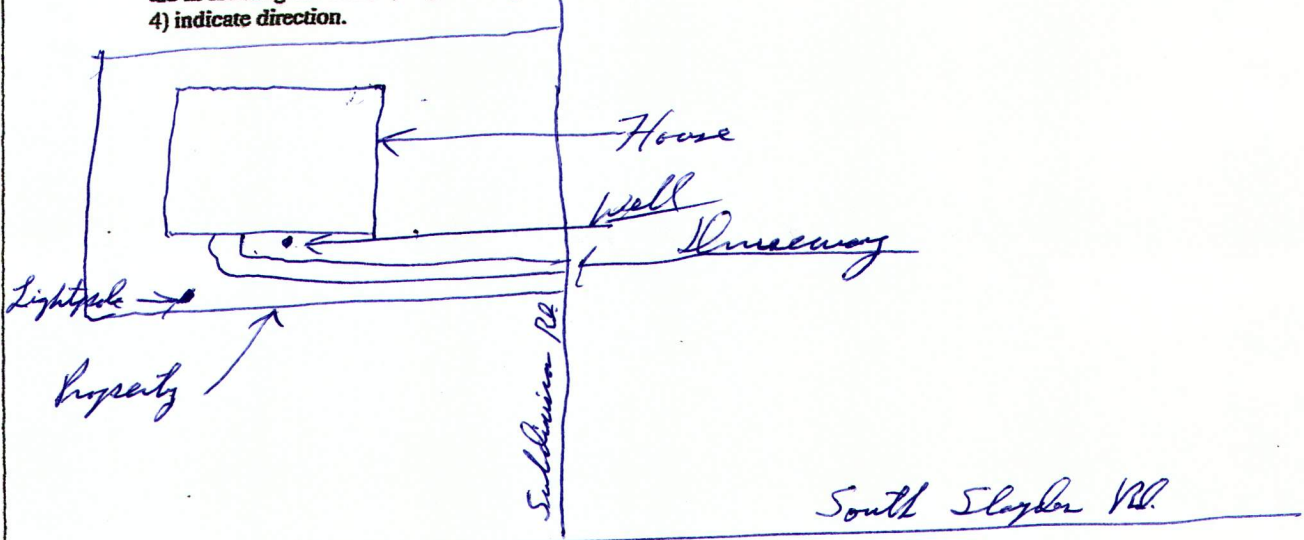 4) indicate direction.
House
Well
Driveway
Lightpole
Property
Subdivision Rd.
South Slayden Rd.